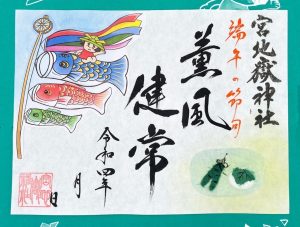 宮地嶽神社
端午の節句
薫風
健常
令和四年
月
日